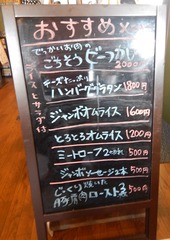 おすすめメニュー
でっかいお肉の
ごっそうビーフカレー
2000
ライスとサラダ付
チーズたっぷり
ハンバーググラタン 1800円
ジャンボオムライス 1600円
とろとろオムライス 1200円
ミートローフ 500円
ジャンボソーセージ2本 500円
じっくり焼いた
豚肩肉ロースト 500円